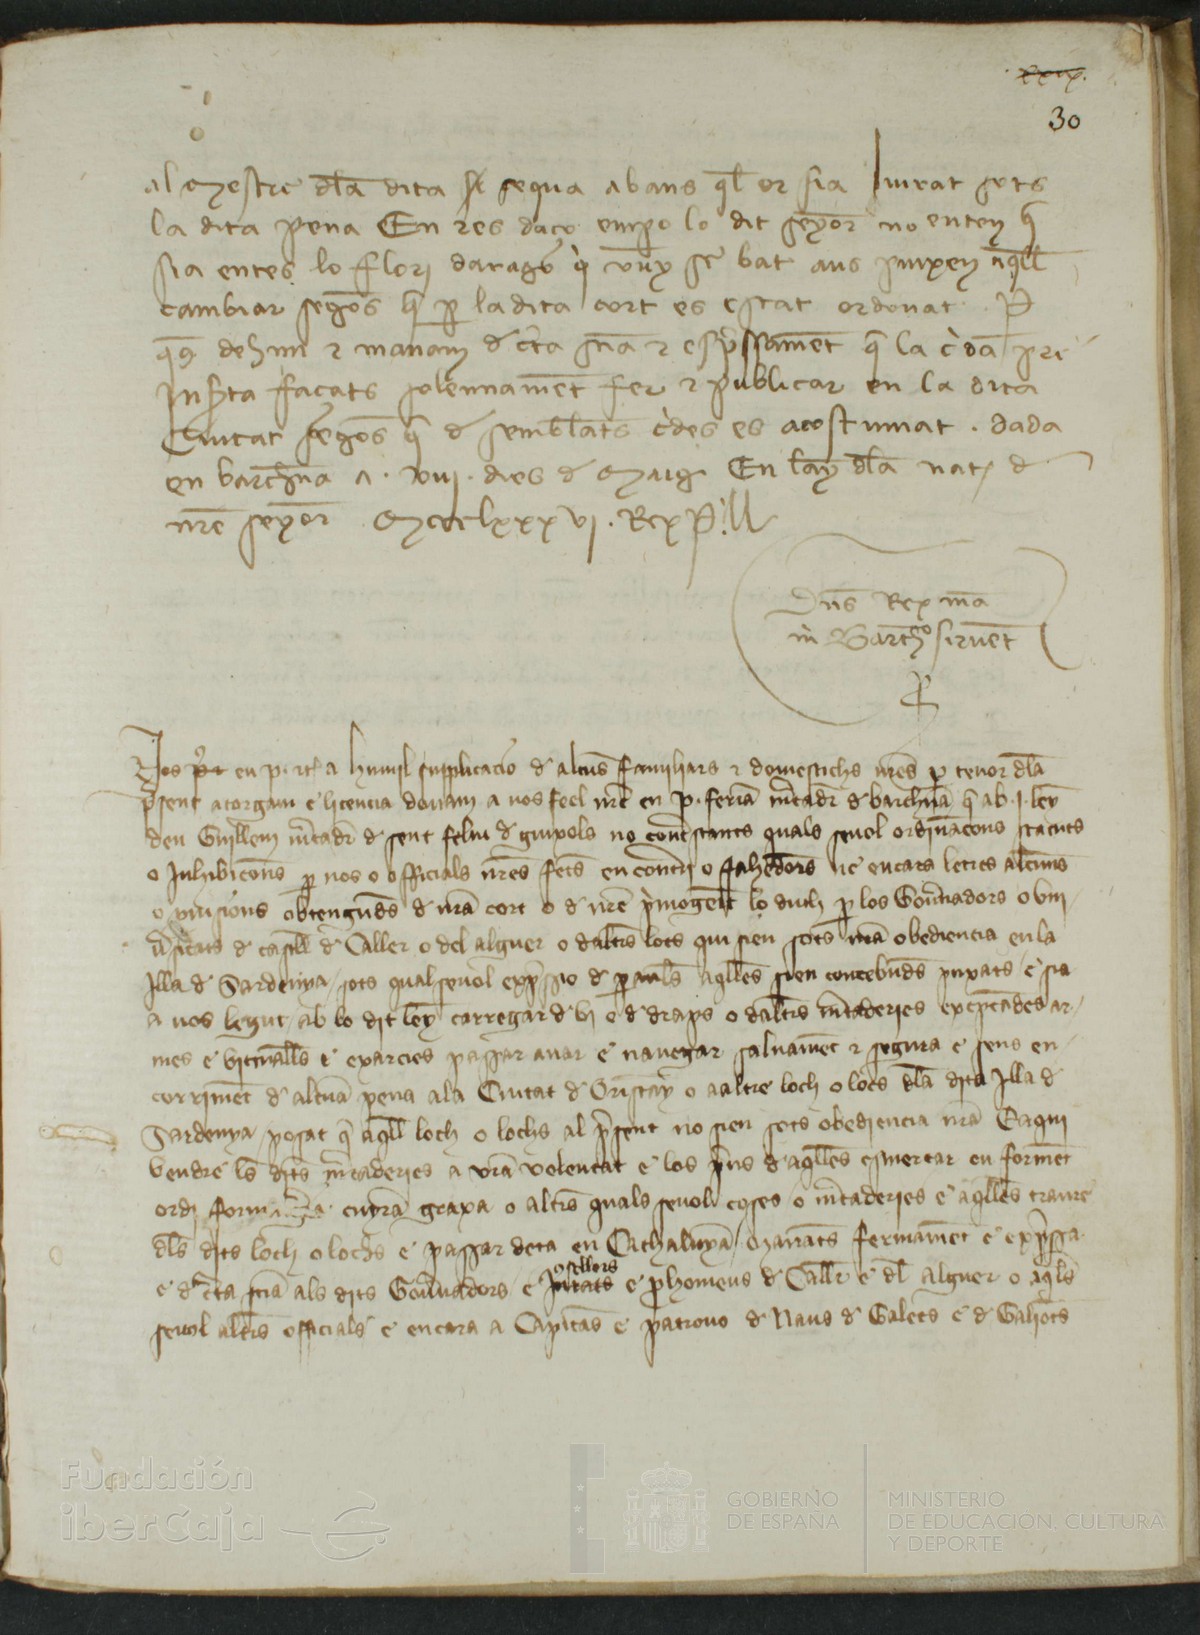 xxix.
30
al Mestre dla dita si sequa abans ql or sia liurat sots
la dita pena En res daço empo lo dit senyor no enten q
sia entes lo flori darago qi vuy se bat ans puxen aqll
cambiar segons q p la dita cort es estat ordonat. P
dehim e manam de cta e expssament q la cda pre
inserta façats solennament fer e publicar en la dita
Ciutat segons q de semblats cdes es acostumat. dada
en barchna a. viij. dies de Maig En lany dla nat. d
nre senyor Mccclxxxvj. Rex P.
Dns Rex ma
in Bartho siruent
Nos en p. a humil supplicacio d alcuns familiars e domestichs nres p tenor dla
psent atorgam e licencia donam a uos feel nre en p. feria mcadr d barchna q ab .j. leny
den Guillem mcadr d sent feliu d guixols no contrastants quals seuol ordinacions statuts
o Inhibicons p nos o officials nres fets en contri o fahedors ne encara letres alcunes
o puisions obtengudes d nra cort o d nre pmogenit lo duch p los Gouernadors o vni
uersitats d castell d Caller o del alguer o daltres lochs qui sien sots nra obediencia en la
Illa d Sardenya / sots qualseuol expssio d paraules aqlles sien concebudes puxats / e sia
a uos legut / ab lo dit leny carregar d vi e d draps o daltres mcaderies exceptades ar/
mes e vitualles e exarcies passar anar e nauegar saluament e segura e sens en/
corriment d alcuna pena ala Ciutat d Oristany o a altre loch o lochs dla dita Illa d
Sardenya / posat q aqll loch o lochs al psent no sien sots obediencia nra E aqui
vendre les dites mcaderies a vra volentat e los preus d aqlles esmerçar en forment
ordi formatge cuyram grexa o altres quals seuol coses o mcaderies e aqlles traure
dls dits loch o lochs e passar deça en Cathalunya / Manants fermament e expssa
e d cta scia als dits Gouernadors e Jurats osellers e prohomens d Caller e dl Alguer o aqls
seuol altres officials e encara a Capitans e patrons d Naus d Galees e d Galiotes
Fundación
iberCaja
GOBIERNO
DE ESPAÑA
MINISTERIO
DE EDUCACIÓN, CULTURA
Y DEPORTE